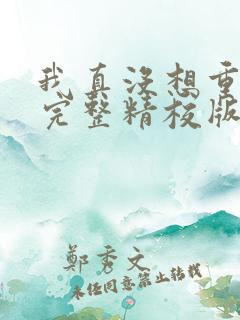 我真没想重
完整精校版
郑秀文
未经同意禁止转载